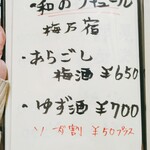 ・和のリキュール
梅乃宿
・あらごし
梅酒 ¥650
・ゆず酒 ¥700
ソーダ割 ¥50プラス